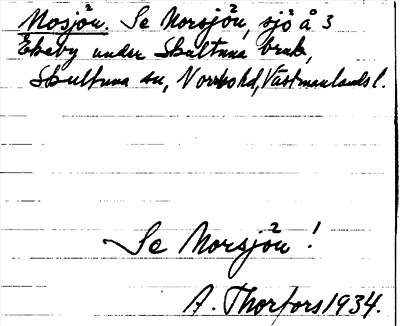 Mosjön. Se Norsjön, sjö å 3
Ekeby under Skultuna bruk,
Skultuna sn, Norrbo hd, Västmanlands l.
Se Norsjön!
A. Thorfors 1934.